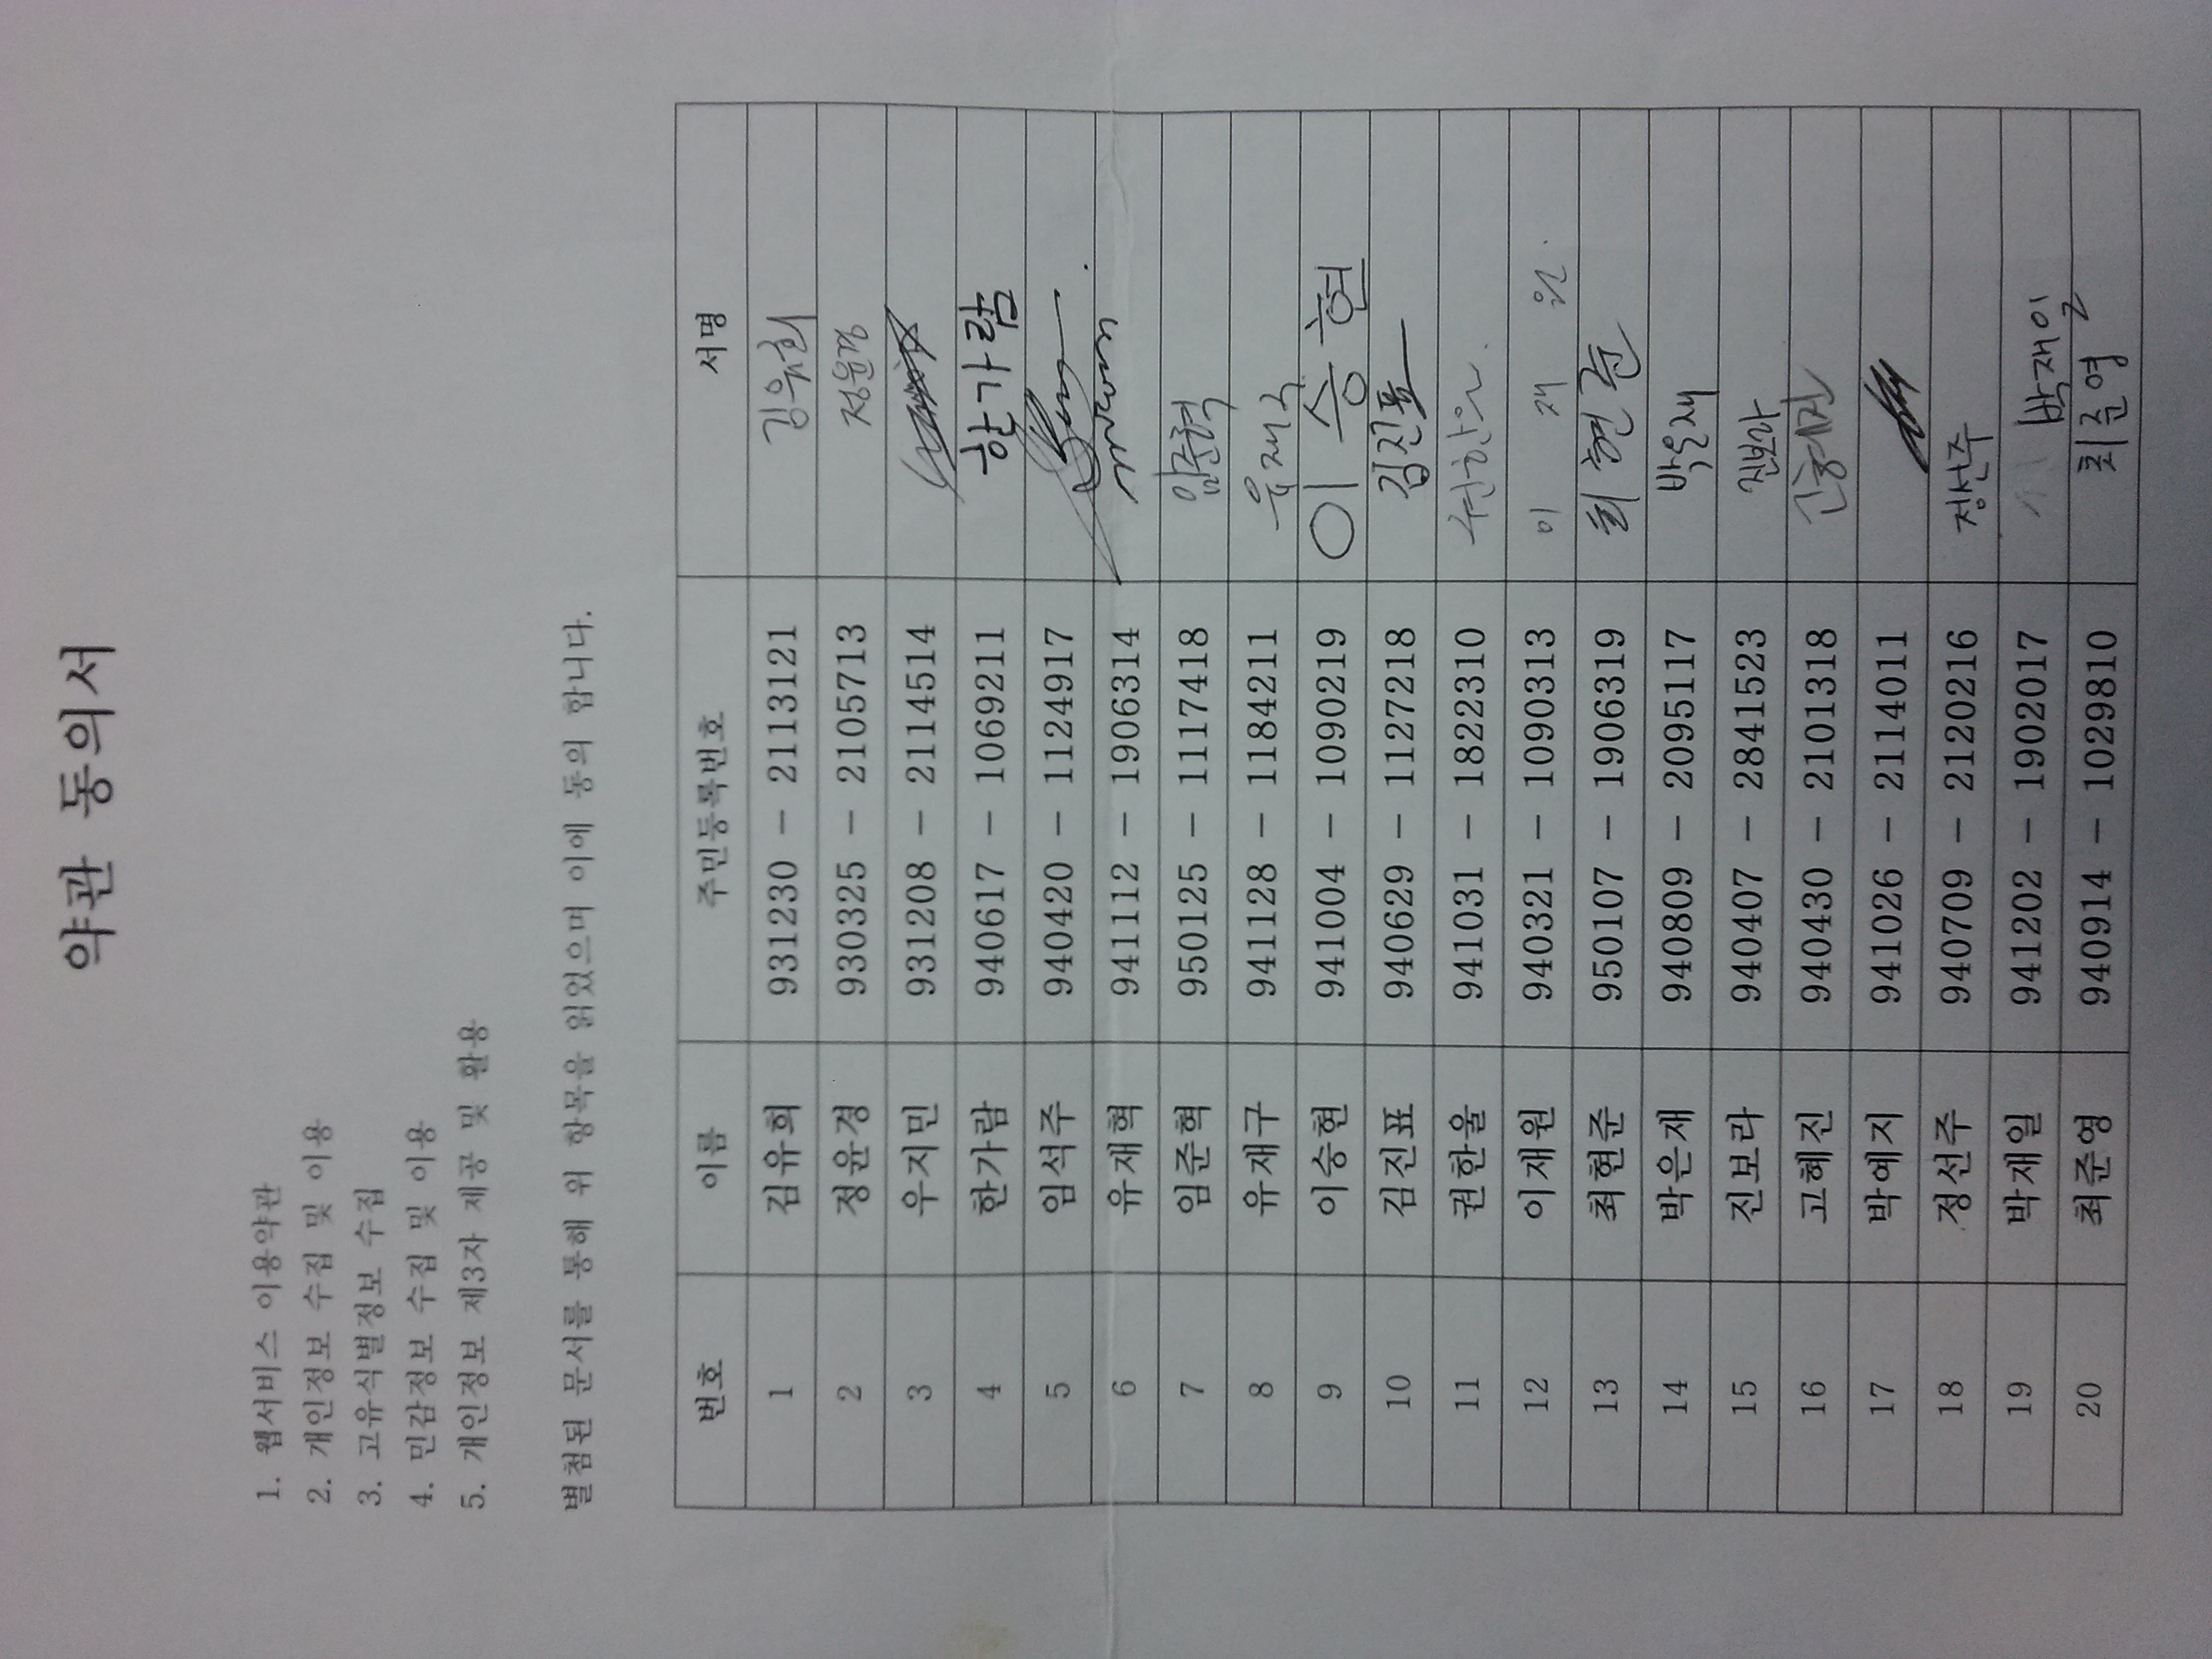 약관 동의서
1. 웹서비스 이용약관
2. 개인정보 수집 및 이용
3. 고유식별정보 수집
4. 민감정보 수집 및 이용
5. 개인정보 제3자 제공 및 활용
별첨된 문서를 통해 위 항목을 읽었으며 이에 동의 합니다.
번호 이름 주민등록번호 서명
1 김유희 931230 - 2113121 김유희
2 정윤경 930325 - 2105713 정윤경
3 우지민 931208 - 2114514
4 한가람 940617 - 1069211 한가람
5 임석주 940420 - 1124917
6 유재혁 941112 - 1906314
7 임준혁 950125 - 1117418 임준혁
8 유재구 941128 - 1184211 유재구
9 이승현 941004 - 1090219 이승현
10 김진표 940629 - 1127218 김진표
11 권한울 941031 - 1822310 권한울
12 이재원 940321 - 1090313 이 재 원.
13 최현준 950107 - 1906319 최현준
14 박은재 940809 - 2095117 박은재
15 진보라 940407 - 2841523 진보라
16 고혜진 940430 - 2101318 고혜진
17 박예지 941026 - 2114011
18 정선주 940709 - 2120216 정선주
19 박재일 941202 - 1902017 박재일
20 최준영 940914 - 1029810 최준영